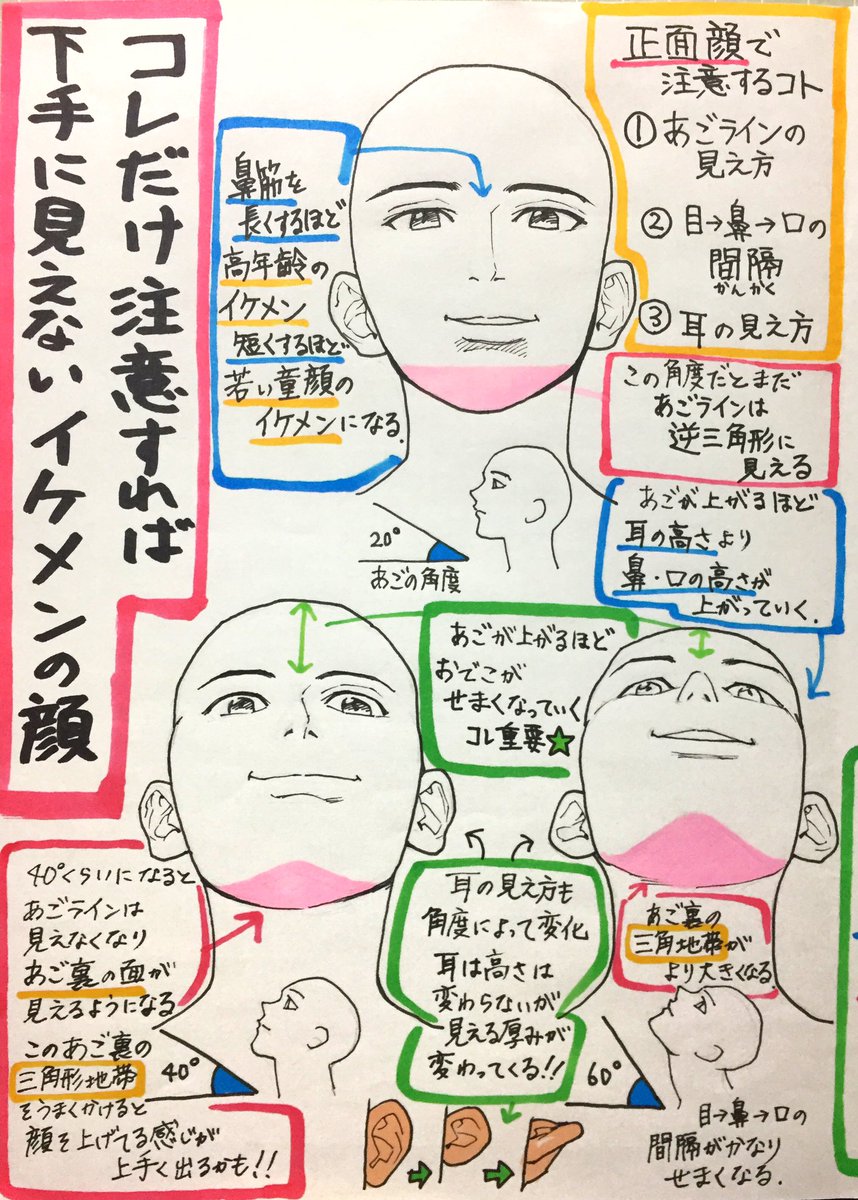 コレだけ注意すれば
下手に見えないイケメンの顔
正面顔で
注意するコト
① あごラインの
見え方
② 目→鼻→口の
間隔
かんかく
③ 耳の見え方
鼻筋を
長くするほど
高年齢の
イケメン
短くするほど
若い童顔の
イケメンになる.
この角度だとまだ
あごラインは
逆三角形に
見える
20°
あごの角度
あごが上がるほど
耳の高さより
鼻・口の高さが
上がっていく.
あごが上がるほど
おでこが
せまくなっていく
コレ重要★
40°くらいになると
あごラインは
見えなくなり
あご裏の面が
見えるようになる
このあご裏の
三角形地帯
をうまくかけると
顔を上げてる感じが
上手く出るかも!!
40°
耳の見え方も
角度によって変化
耳は高さは
変わらないが
見える厚みが
変わってくる!!
あご裏の
三角地帯が
より大きくなる.
60°
目→鼻→口の
間隔がかなり
せまくなる.